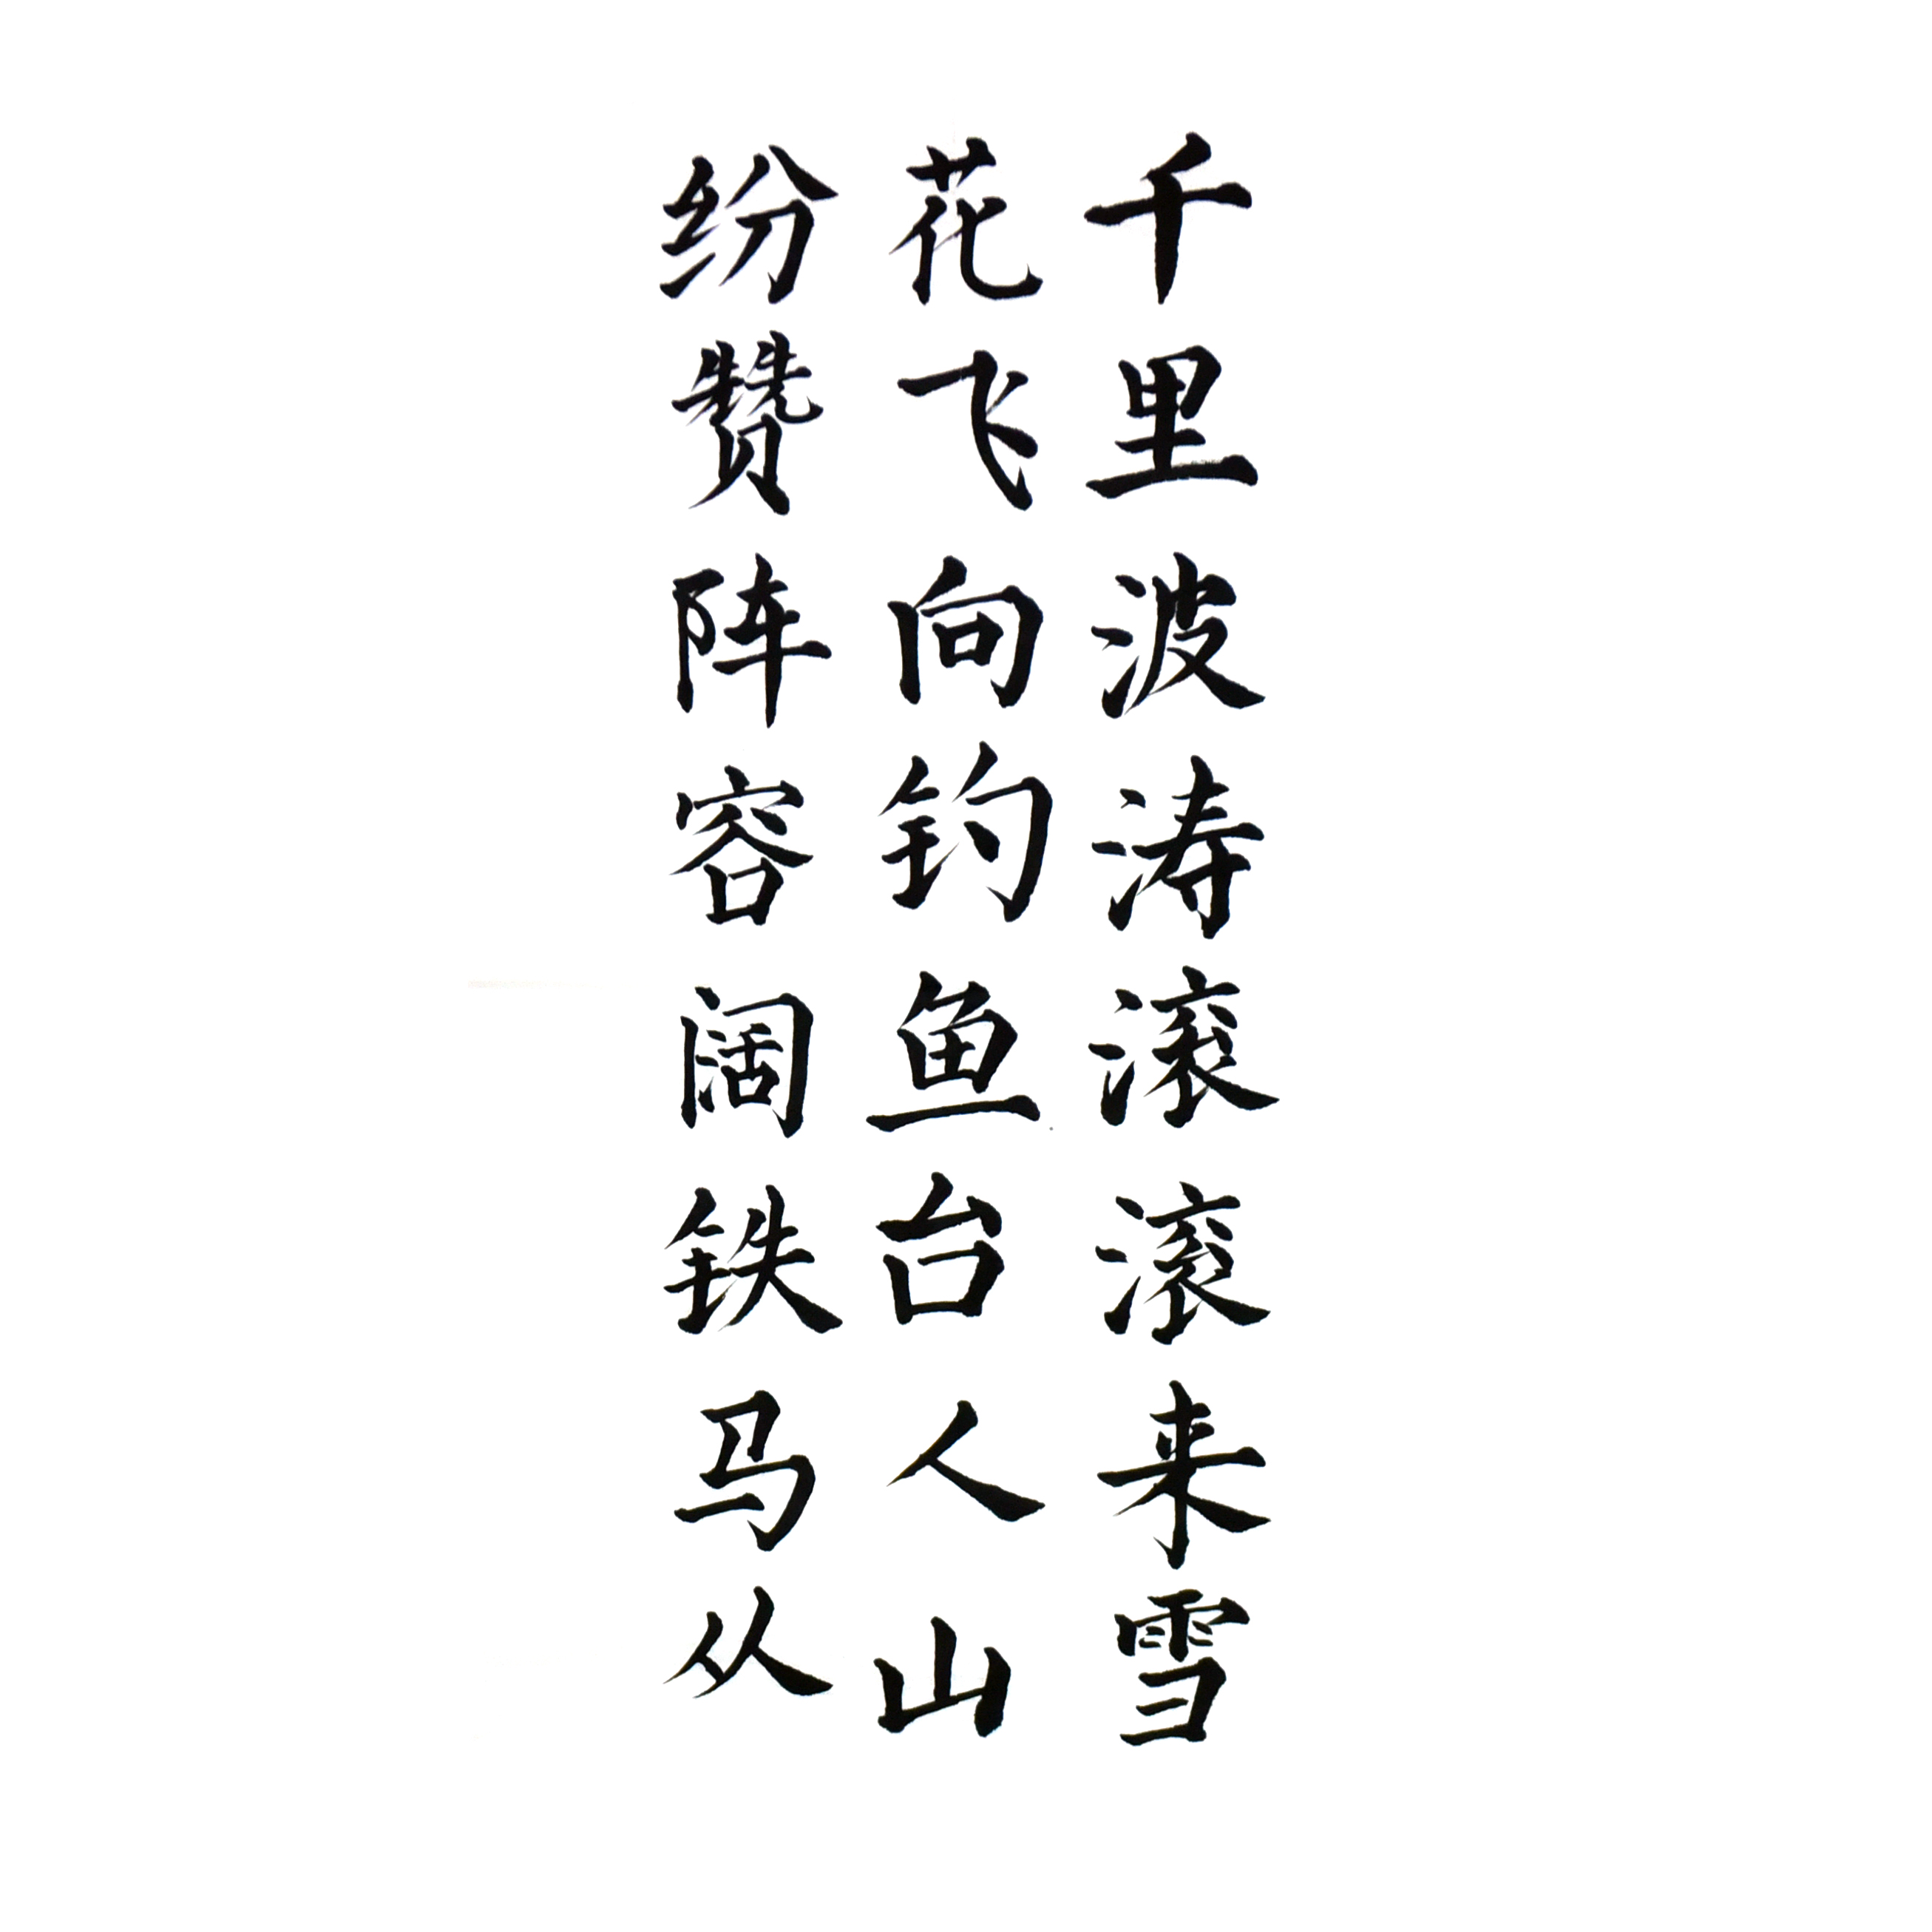 千里波涛滚滚来雪
花飞向钓鱼台人山
纷赞阵容阔铁马从